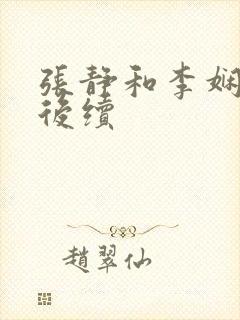 張静和李娴
後續
趙翠仙